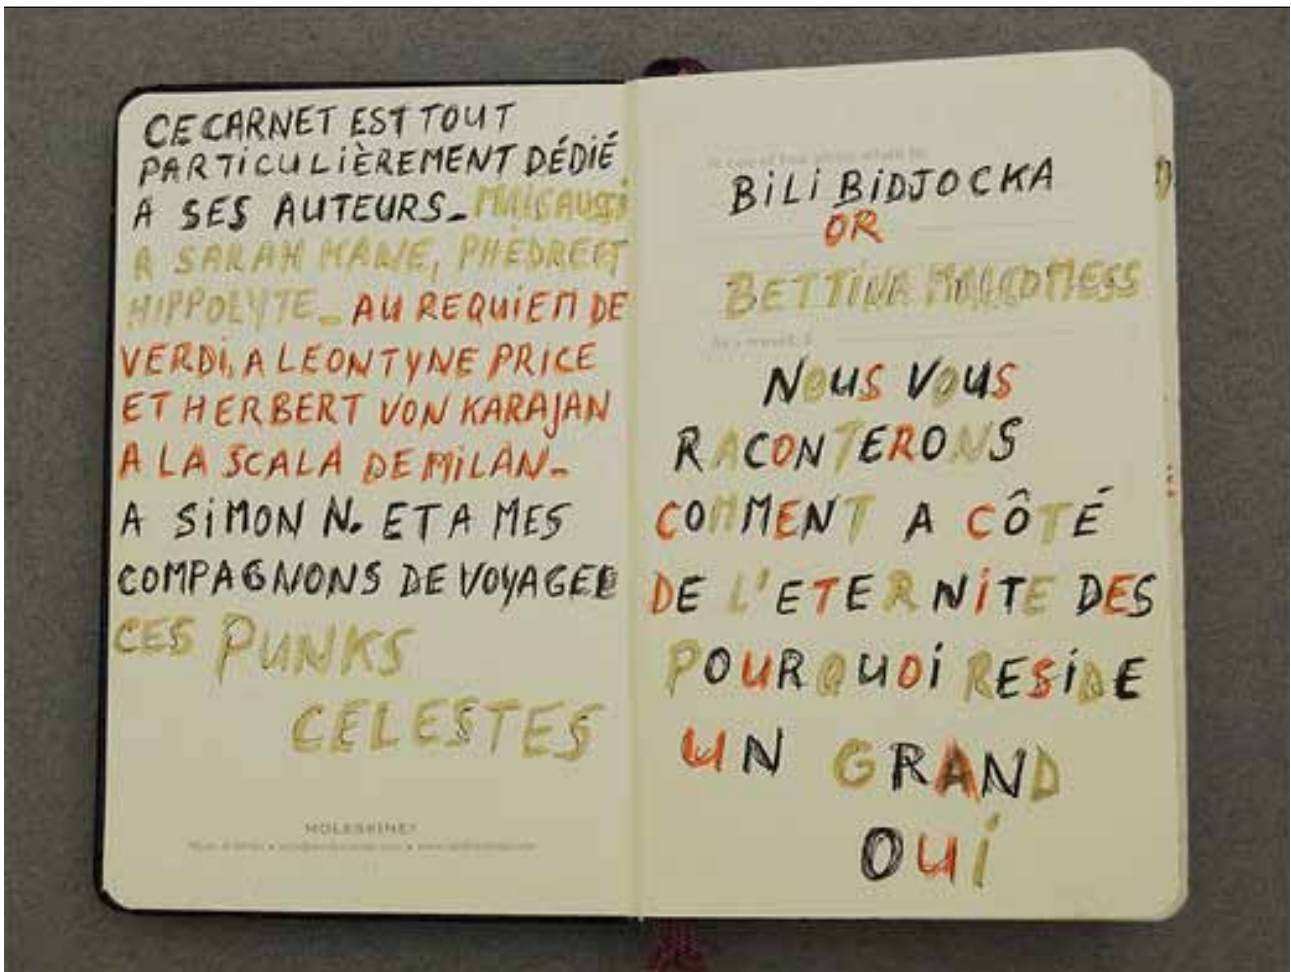 CE CARNET EST TOUT
PARTICULIÈREMENT DÉDIÉ
A SES AUTEURS_ MAIS AUSSI
A SARAH KANE, PHÈDRE ET
HIPPOLYTE_ AU REQUIEM DE
VERDI, A LEONTYNE PRICE
ET HERBERT VON KARAJAN
A LA SCALA DE MILAN_
A SiMON N. ET A MES
COMPAGNONS DE VOYAGE
CES PUNKS
CELESTES
MOLESKINE®
In case of loss, please return to:
BiLi BiDJOCKA
OR
BETTINA MALCOMESS
As a reward: $
NOUS VOUS
RACONTERONS
COMMENT A CÔTÉ
DE L'ETERNiTE DES
POURQUOi RESiDE
UN GRAND
OUi